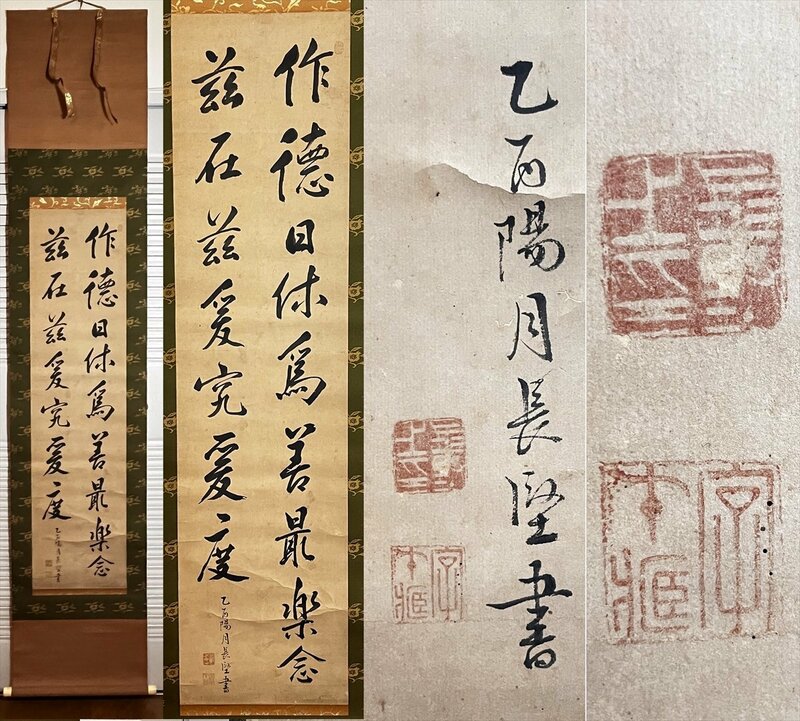 作德日休爲善最樂念
茲在茲爰究爰度
乙酉陽月長堅書
作德日休爲善最樂念
茲在茲爰究爰度
乙酉陽月長堅書
乙酉陽月長堅書